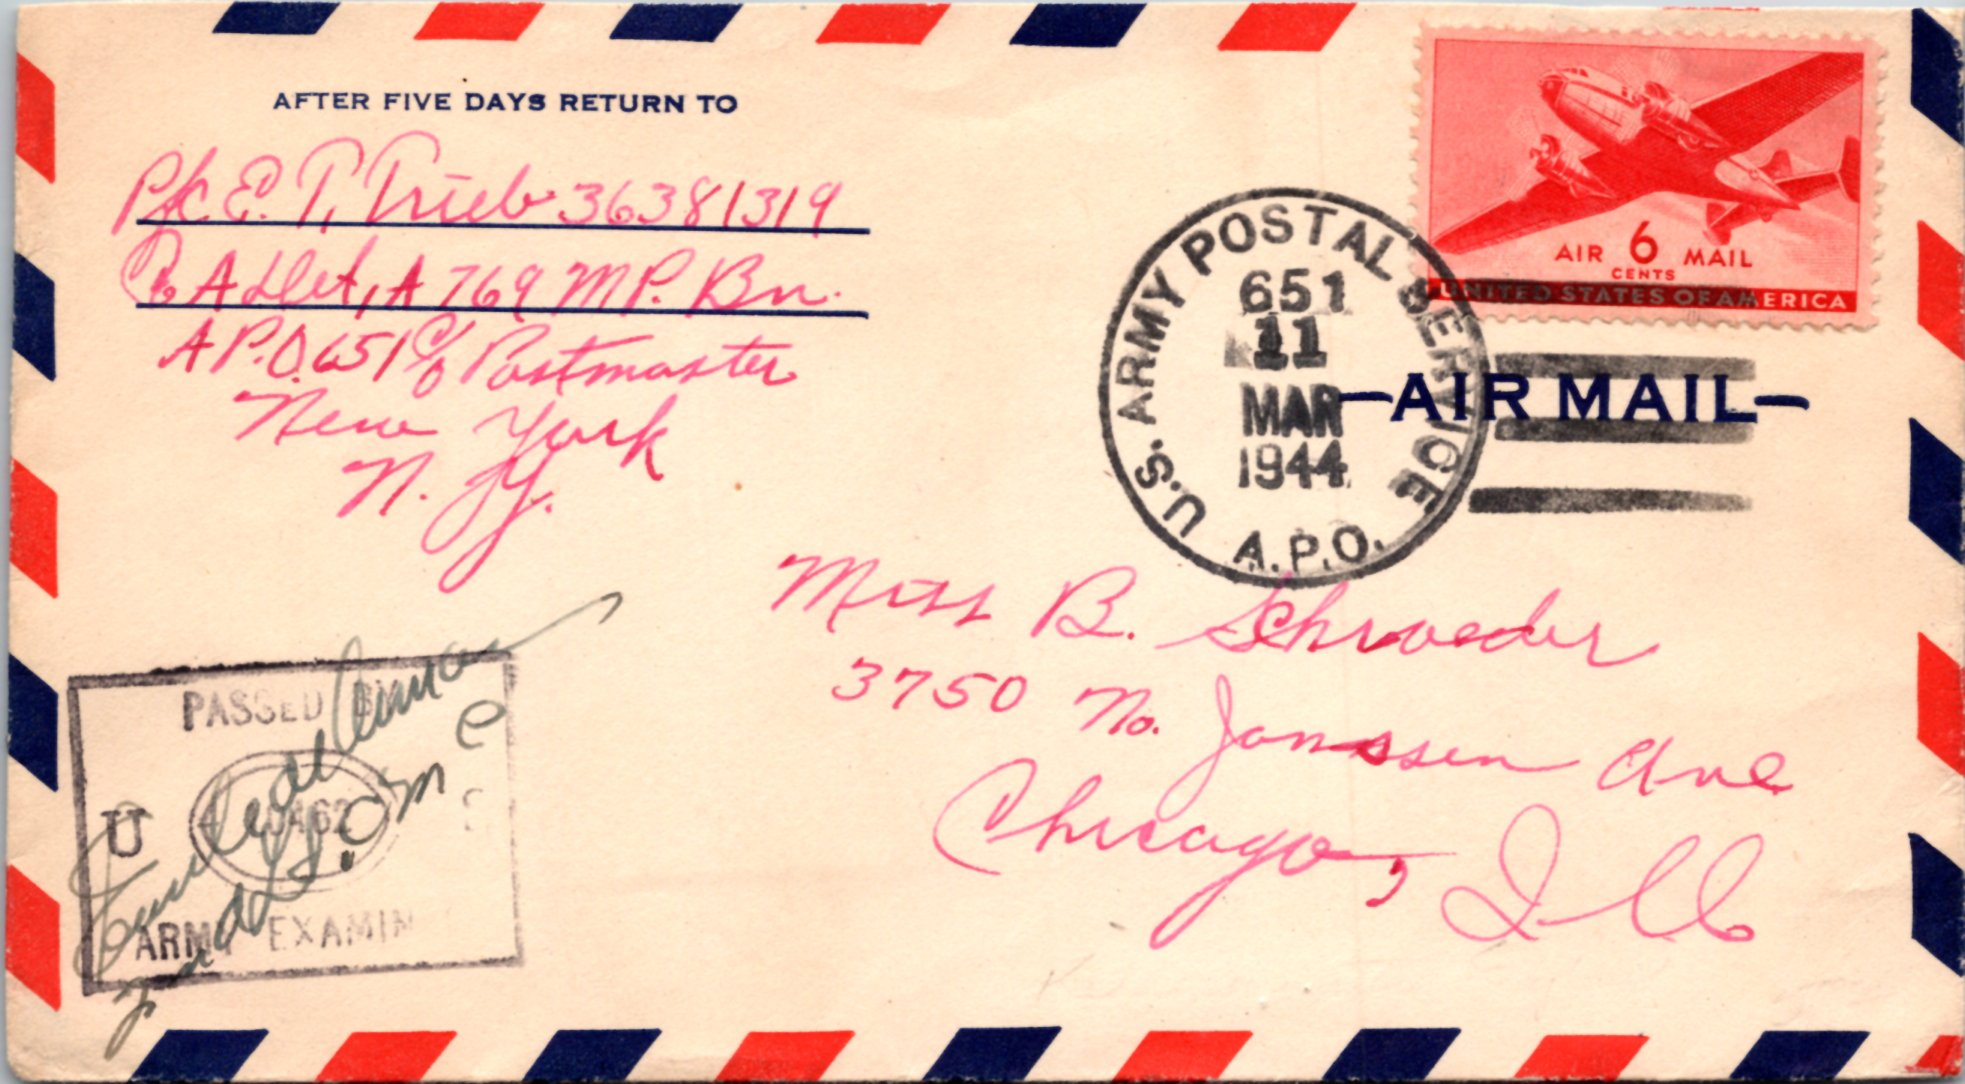 AFTER FIVE DAYS RETURN TO
Pfc E. T. Trieb 36381319
Co A Det, A 769 M.P. Bn.
A.P.O. 651 c/o Postmaster
New York
N. Y.
AIR 6 MAIL
CENTS
UNITED STATES OF AMERICA
U.S. ARMY POSTAL SERVICE
651
11
MAR
1944
A.P.O.
—AIR MAIL—
Miss B. Schroeder
3750 No. Janssen Ave
Chicago, Ill
PASSED BY
U S
ARMY EXAMIN
2nd Lt. CMP